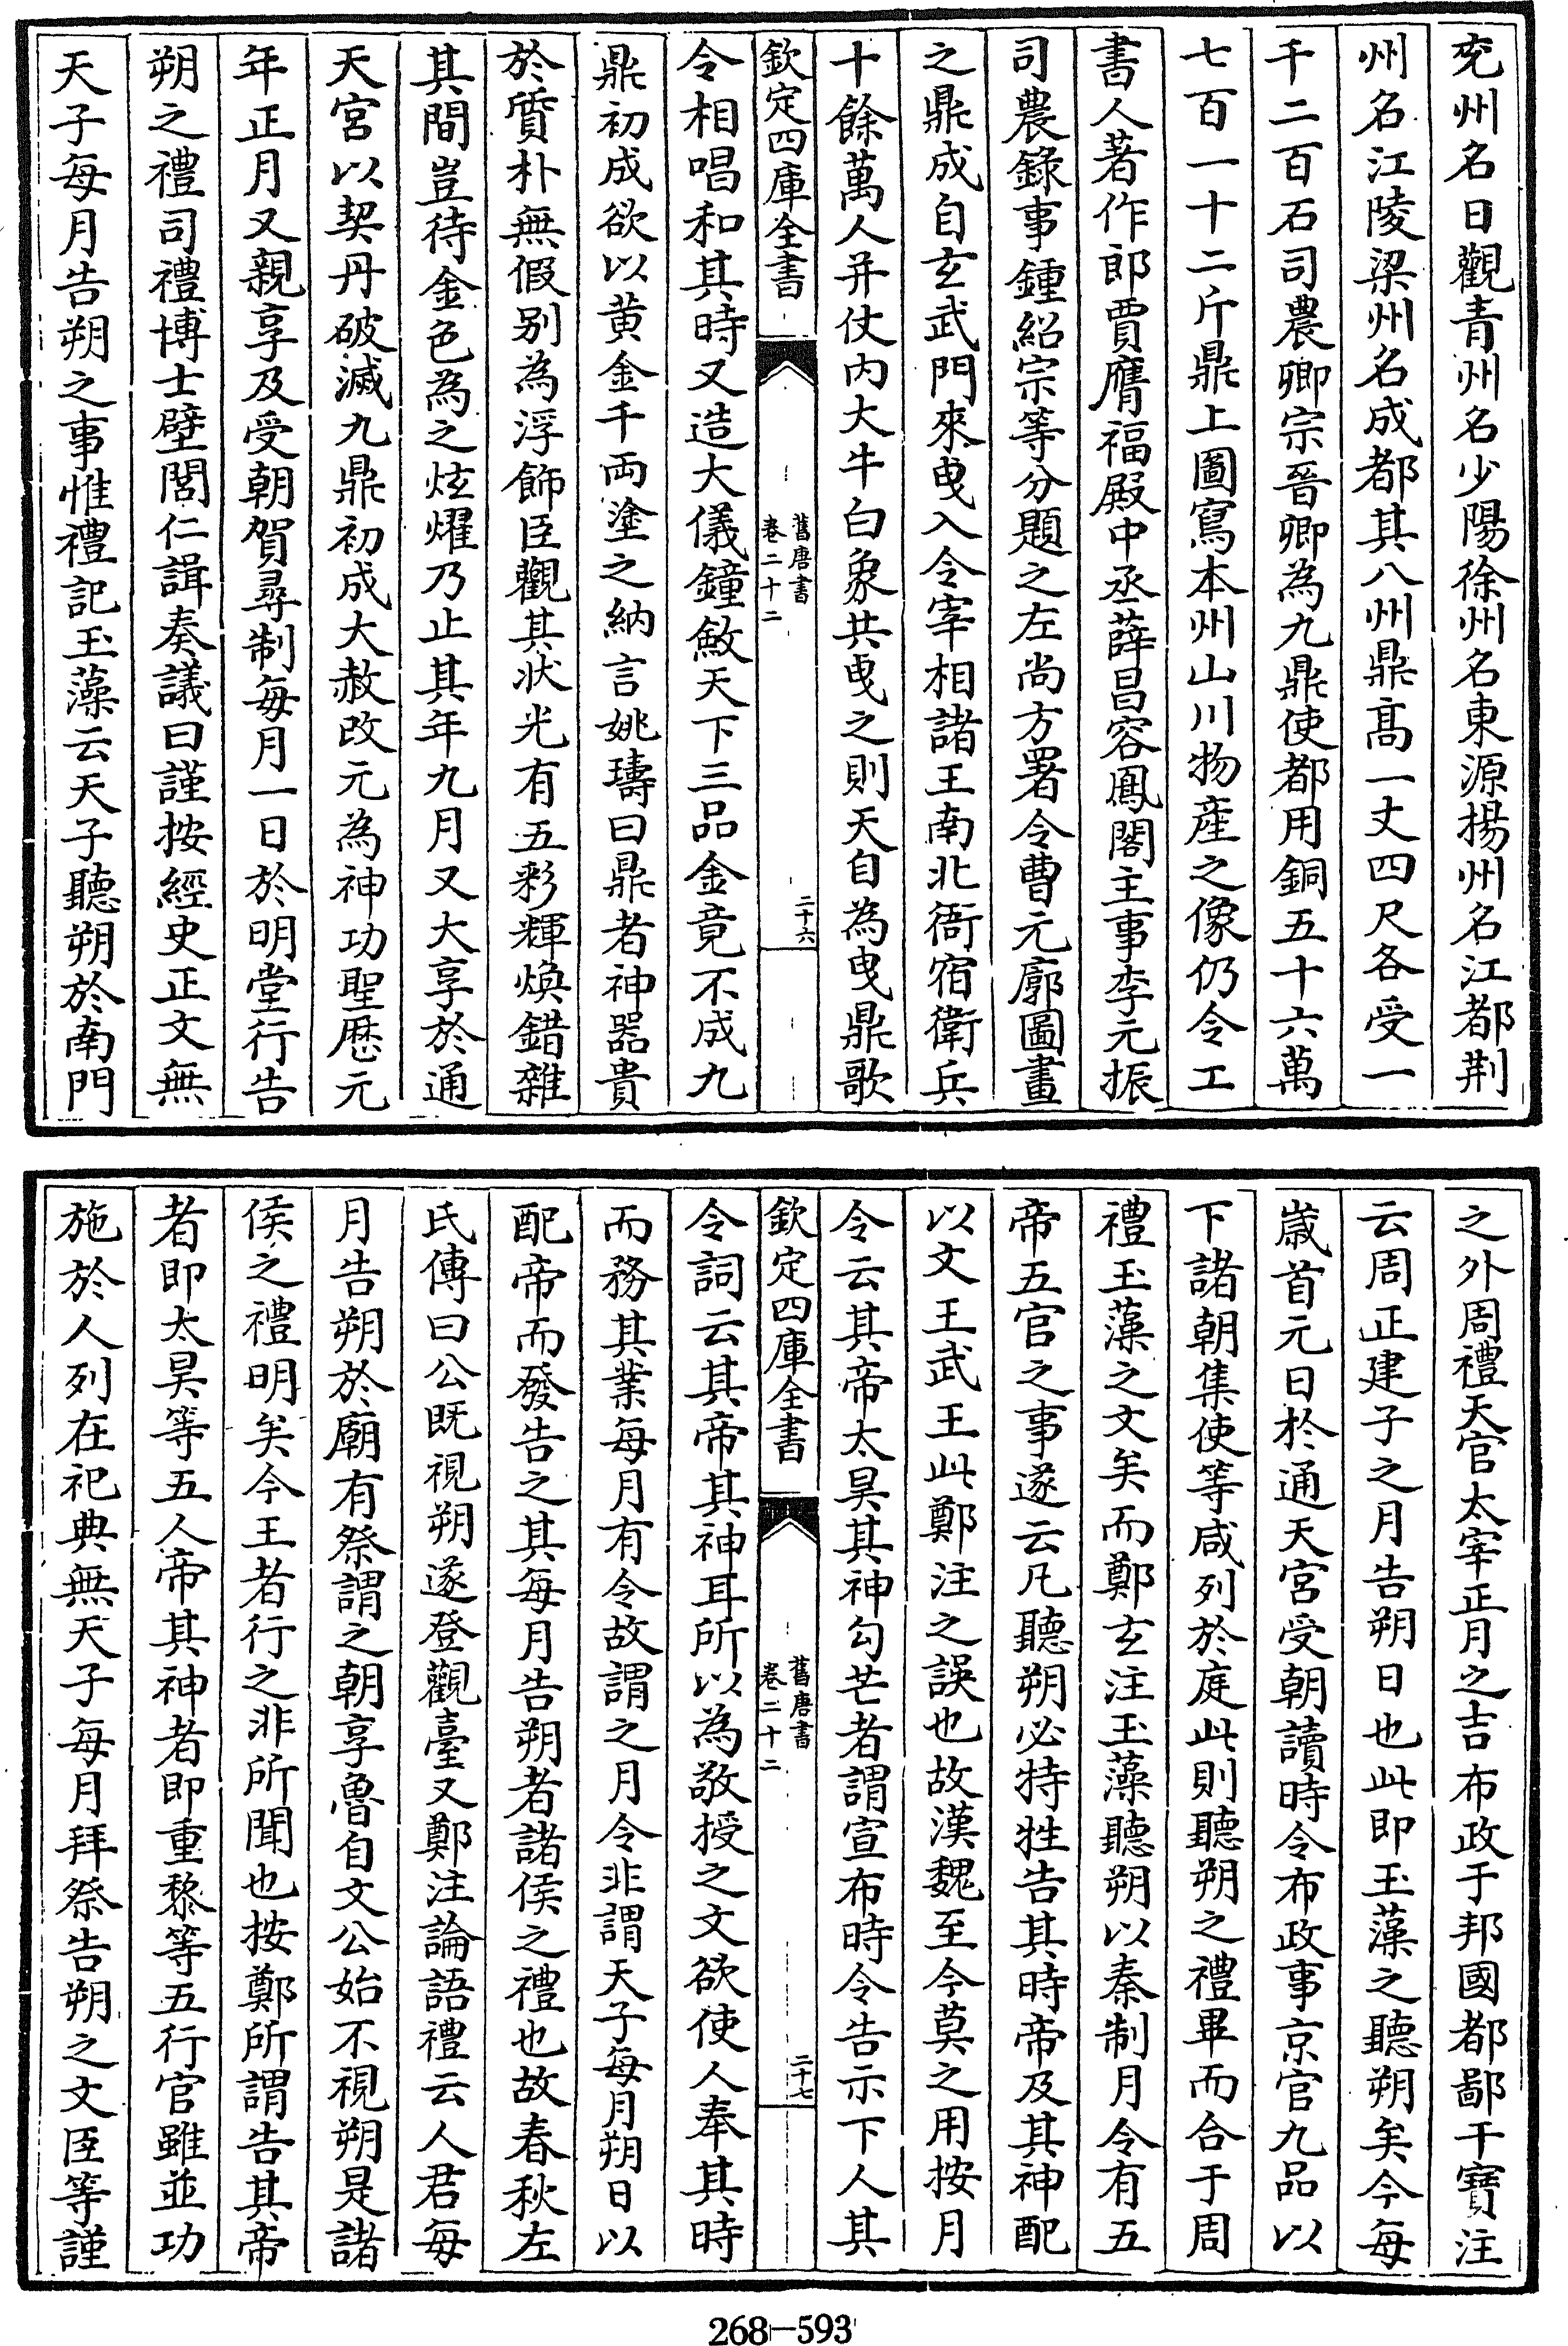 兖州名日觀青州名少陽徐州名東源揚州名江都荆
州名江陵梁州名成都其八州鼎髙一丈四尺各受一
千二百石司農卿宗晉卿為九鼎使都用銅五十六萬
七百一十二斤鼎上圖寫本州山川物産之像仍令工
書人著作郎賈膺福殿中丞薛昌容鳳閣主事李元振
司農錄事鍾紹宗等分題之左尚方署令曹元廓圖畫
之鼎成自玄武門來曵入令宰相諸王南北衙宿衛兵
十餘萬人并仗内大牛白象共曵之則天自為曵鼎歌
欽定四庫全書
舊唐書
卷二十二
二十六
令相唱和其時又造大儀鐘斂天下三品金竟不成九
鼎初成欲以黄金千両塗之納言姚璹曰鼎者神器貴
於質朴無假别為浮飾臣觀其状光有五彩輝煥錯雜
其間豈待金色為之炫燿乃止其年九月又大享於通
天宮以契丹破滅九鼎初成大赦改元為神功聖厯元
年正月又親享及受朝賀尋制每月一日於明堂行告
朔之禮司禮博士壁閭仁諿奏議曰謹按經史正文無
天子每月告朔之事惟禮記玉藻云天子聽朔於南門
之外周禮天官太宰正月之吉布政于邦國都鄙干寶注
云周正建子之月告朔日也此即玉藻之聽朔矣今每
歲首元日於通天宮受朝讀時令布政事京官九品以
下諸朝集使等咸列於庭此則聽朔之禮畢而合于周
禮玉藻之文矣而鄭玄注玉藻聽朔以秦制月令有五
帝五官之事遂云凡聽朔必特牲告其時帝及其神配
以文王武王此鄭注之誤也故漢魏至今莫之用按月
令云其帝太昊其神勾芒者謂宣布時令告示下人其
欽定四庫全書
舊唐書
卷二十二
二十七
令詞云其帝其神耳所以為敬授之文欲使人奉其時
而務其業每月有令故謂之月令非謂天子每月朔日以
配帝而發告之其每月告朔者諸侯之禮也故春秋左
氏傳曰公既視朔遂登觀臺又鄭注論語禮云人君每
月告朔於廟有祭謂之朝享魯自文公始不視朔是諸
侯之禮明矣今王者行之非所聞也按鄭所謂告其帝
者即太昊等五人帝其神者即重黎等五行官雖並功
施於人列在祀典無天子每月拜祭告朔之文臣等謹
268-593